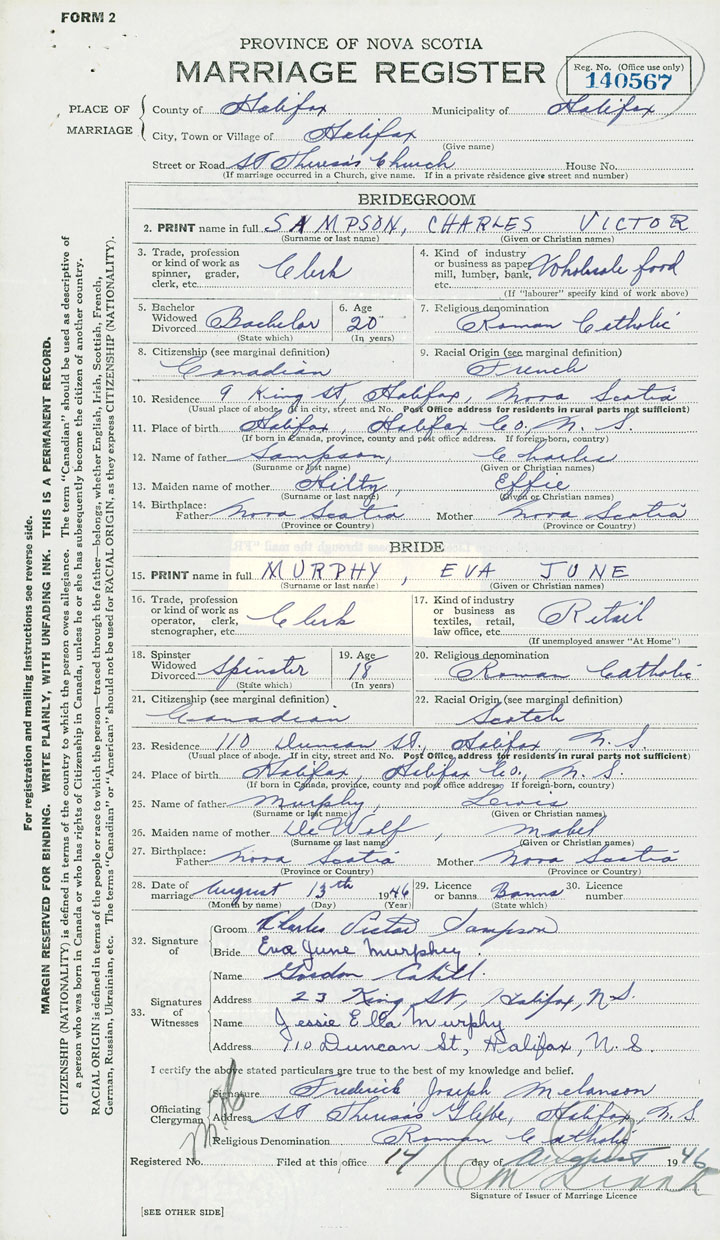 FORM 2
PROVINCE OF NOVA SCOTIA
MARRIAGE REGISTER
Reg. No. (Office use only)
140567
PLACE OF MARRIAGE
County of Halifax Municipality of Halifax
City, Town or Village of Halifax
(Give name)
Street or Road St Theresa's Church House No.
(If marriage occurred in a Church, give name. If in a private residence give street and number)
BRIDEGROOM
2. PRINT name in full SAMPSON, CHARLES VICTOR
(Surname or last name) (Given or Christian names)
3. Trade, profession or kind of work as spinner, grader, clerk, etc. Clerk
4. Kind of industry or business as paper mill, lumber, bank, etc. Wholesale food
(If "labourer" specify kind of work above)
5. Bachelor Widowed Divorced Bachelor
(State which)
6. Age 20
(In years)
7. Religious denomination
Roman Catholic
8. Citizenship (see marginal definition)
Canadian
9. Racial Origin (see marginal definition)
French
10. Residence 9 King St, Halifax, Nova Scotia
(Usual place of abode. If in city, street and No. Post Office address for residents in rural parts not sufficient)
11. Place of birth Halifax, Halifax Co, N. S.
(If born in Canada, province, county and post office address. If foreign-born, country)
12. Name of father Sampson, Charles
(Surname or last name) (Given or Christian names)
13. Maiden name of mother Hilty, Effie
(Surname or last name) (Given or Christian names)
14. Birthplace: Father Nova Scotia Mother Nova Scotia
(Province or Country) (Province or Country)
BRIDE
15. PRINT name in full MURPHY, EVA JUNE
(Surname or last name) (Given or Christian names)
16. Trade, profession or kind of work as operator, clerk, stenographer, etc. Clerk
17. Kind of industry or business as textiles, retail, law office, etc. Retail
(If unemployed answer "At Home")
18. Spinster Widowed Divorced Spinster
(State which)
19. Age 18
(In years)
20. Religious denomination
Roman Catholic
21. Citizenship (see marginal definition)
Canadian
22. Racial Origin (see marginal definition)
Scotch
23. Residence 110 Duncan St, Halifax, N. S.
(Usual place of abode. If in city, street and No. Post Office address for residents in rural parts not sufficient)
24. Place of birth Halifax, Halifax Co., N. S.
(If born in Canada, province, county and post office address. If foreign-born, country)
25. Name of father Murphy, Lewis
(Surname or last name) (Given or Christian names)
26. Maiden name of mother DeWolf, Mabel
(Surname or last name) (Given or Christian names)
27. Birthplace: Father Nova Scotia Mother Nova Scotia
(Province or Country) (Province or Country)
28. Date of marriage August 13th 1946
(Month by name) (Day) (Year)
29. Licence or banns Banns
(State which)
30. Licence number
32. Signature of
Groom Charles Victor Sampson
Bride Eva June Murphy.
33. Signatures of Witnesses
Name Gordon Cahill.
Address 23 King St, Halifax, N.S.
Name Jessie Ella Murphy
Address 110 Duncan St, Halifax, N. S.
I certify the above stated particulars are true to the best of my knowledge and belief.
Officiating Clergyman
Signature Frederick Joseph Melanson
Address St Theresa's Glebe, Halifax, N.S.
Religious Denomination Roman Catholic
Registered No. Filed at this office 14 day of August 1946
Signature of Issuer of Marriage Licence
[SEE OTHER SIDE]
For registration and mailing instructions see reverse side.
MARGIN RESERVED FOR BINDING. WRITE PLAINLY, WITH UNFADING INK. THIS IS A PERMANENT RECORD.
CITIZENSHIP (NATIONALITY) is defined in terms of the country to which the person owes allegiance. The term "Canadian" should be used as descriptive of
a person who was born in Canada or who has rights of Citizenship in Canada, unless he or she has subsequently become the citizen of another country.
RACIAL ORIGIN is defined in terms of the people or race to which the person—traced through the father—belongs, whether English, Irish, Scottish, French,
German, Russian, Ukrainian, etc. The terms "Canadian" or "American" should not be used for RACIAL ORIGIN, as they express CITIZENSHIP (NATIONALITY).